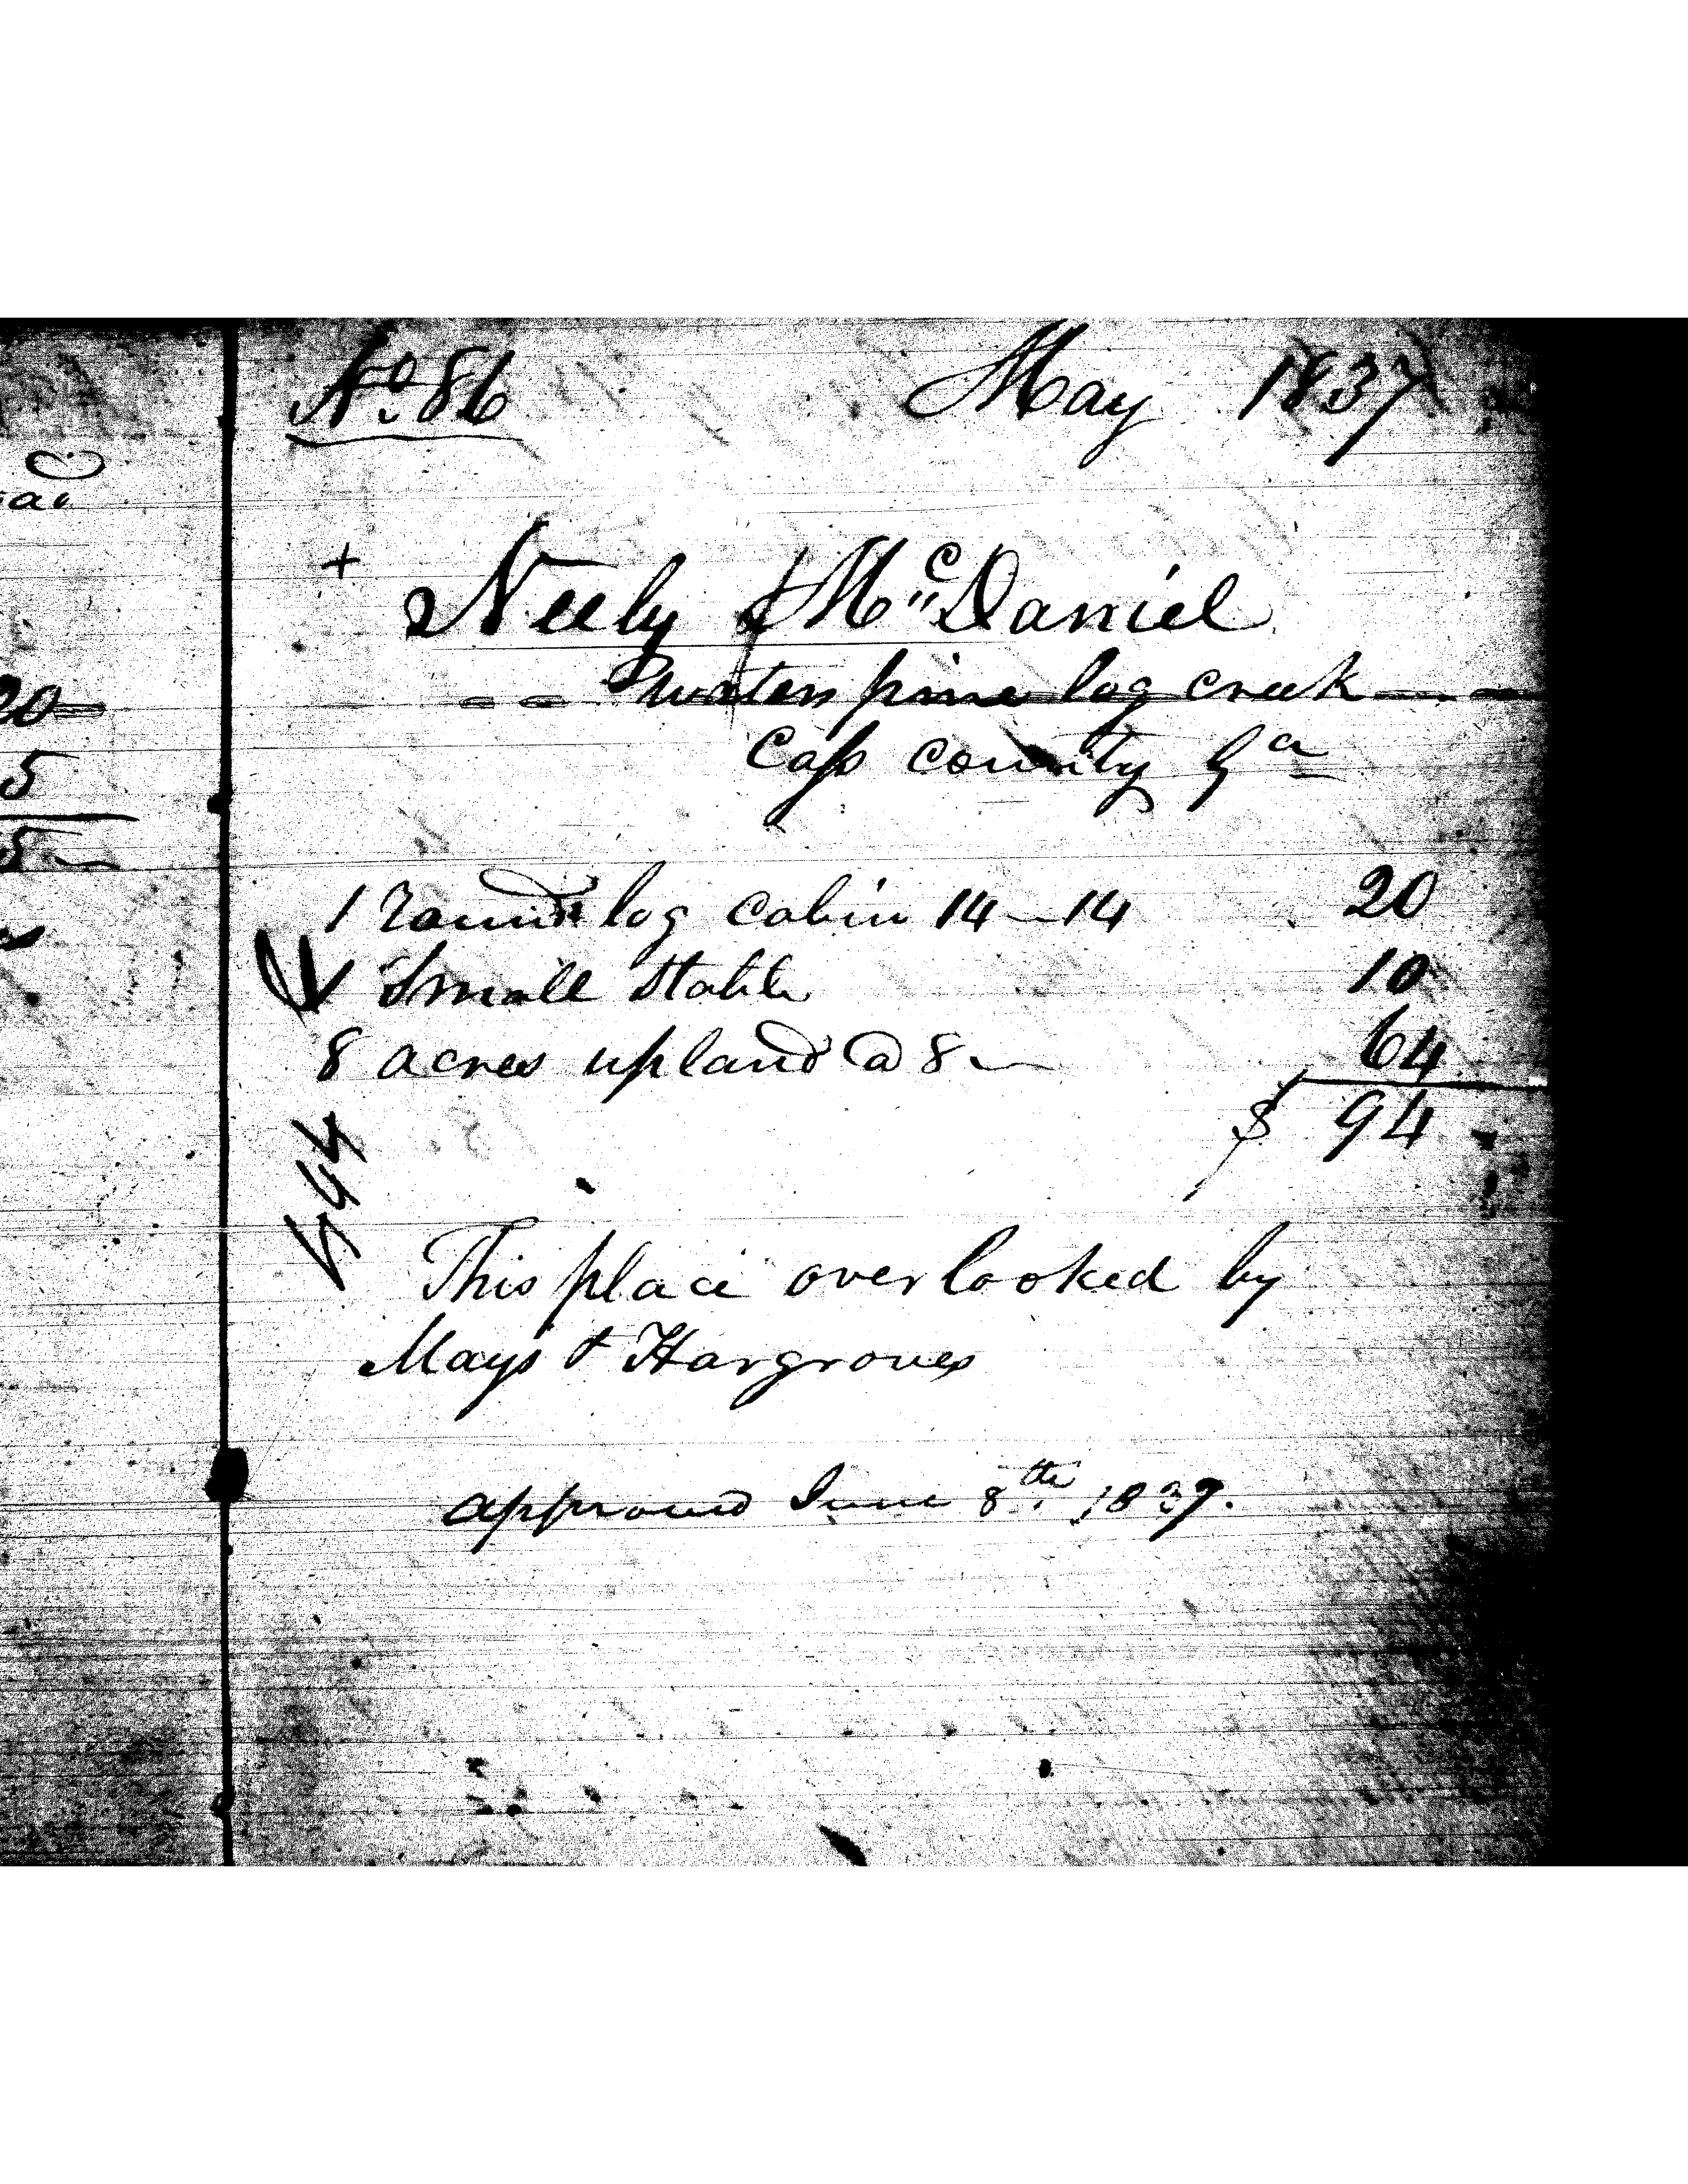 No 86 May 1837
+
Neely McDaniel
waters pine log creek
Cass county Ga
1 round log cabin 14 - 14 20
1 Small Stable 10
8 acres upland @ 8 64
$ 94
This place overlooked by
Mays & Hargroves
approved June 8th 1837.
20
5
5